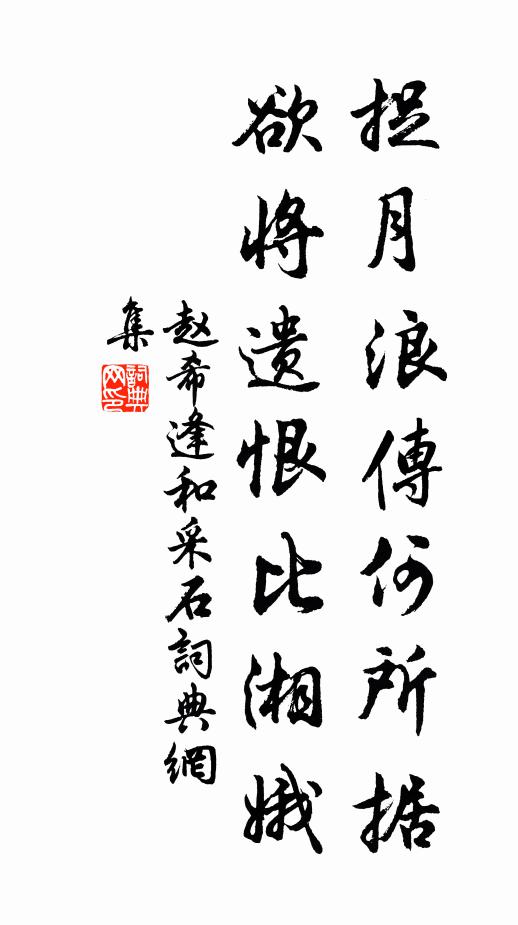 捉月浪傳何所据
欲將遺恨比湘娥
赵希逢和采石詞典網
集
詞典网印